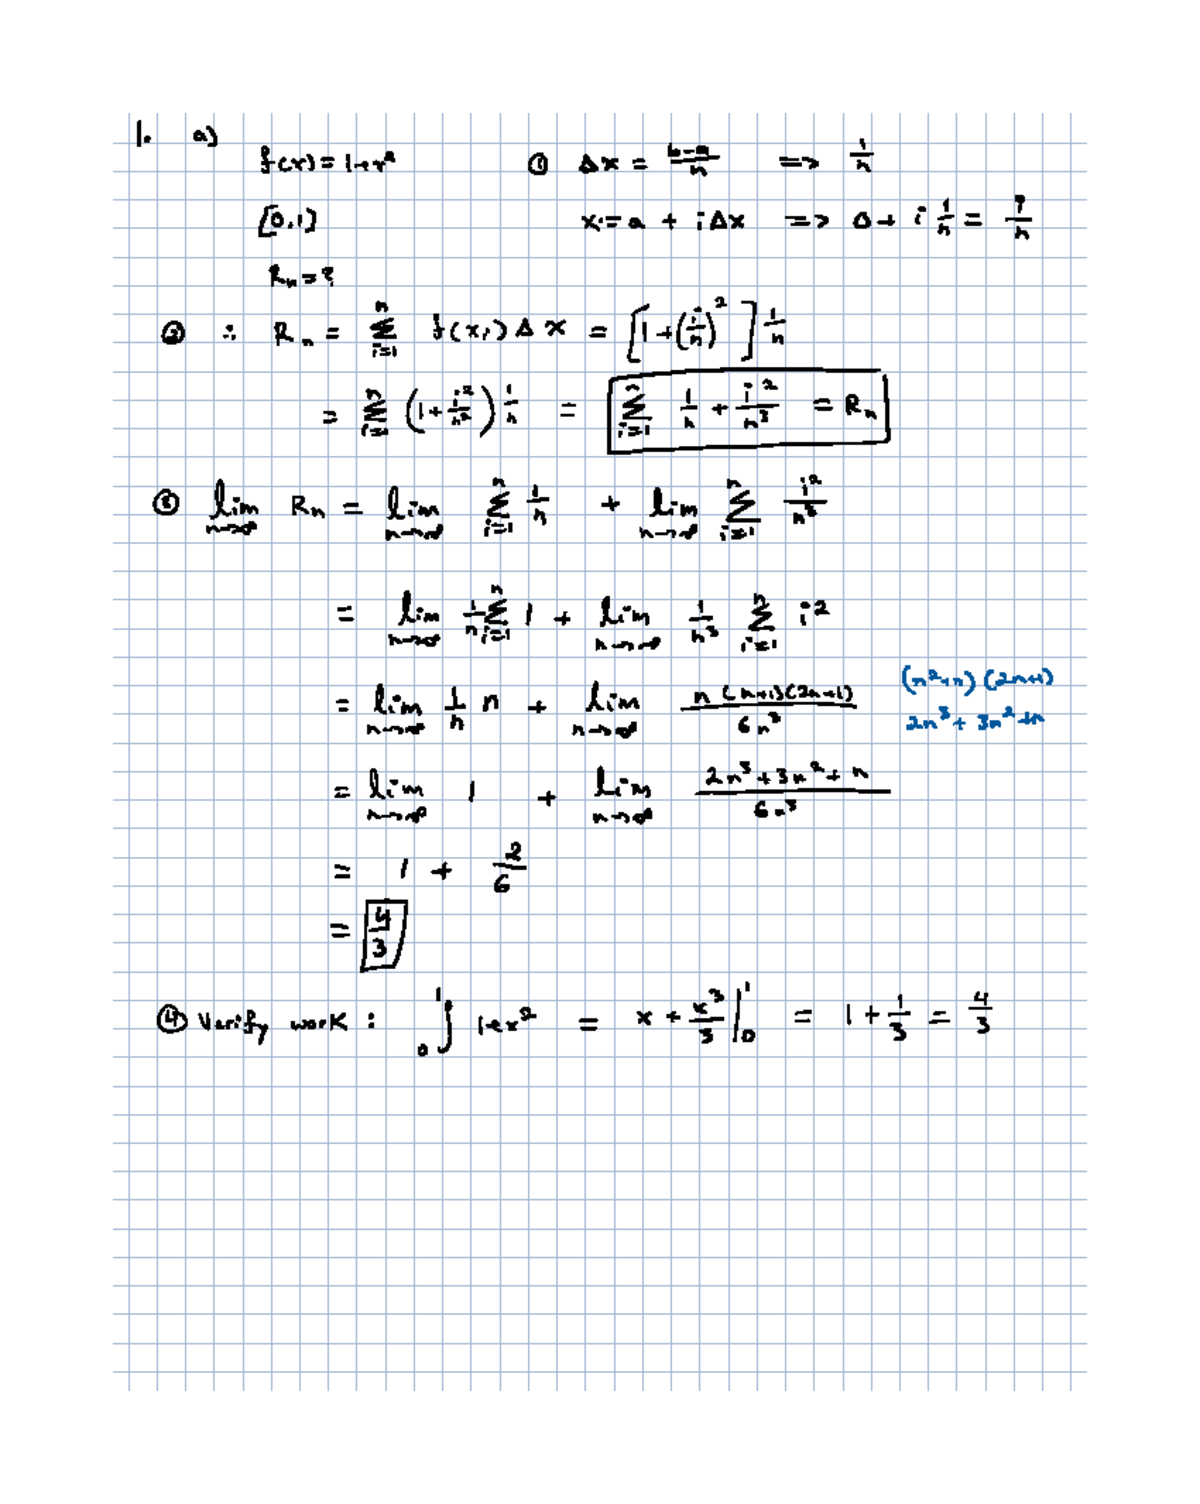 1. a)
f(x) = 1+x² ① Δx = (b-a)/n => 1/n
[0,1] xi = a + iΔx => 0 + i 1/n = i/n
Rn = ?
② ∴ Rn = Σ_{i=1}^{n} f(xi) Δx = [1 + (i/n)²] 1/n
= Σ_{i=1}^{n} (1 + i²/n²) 1/n = Σ_{i=1}^{n} 1/n + i²/n³ = Rn
③ lim_{n→∞} Rn = lim_{n→∞} Σ_{i=1}^{n} 1/n + lim_{n→∞} Σ_{i=1}^{n} i²/n³
= lim_{n→∞} 1/n Σ_{i=1}^{n} 1 + lim_{n→∞} 1/n³ Σ_{i=1}^{n} i²
= lim_{n→∞} 1/n n + lim_{n→∞} n(n+1)(2n+1)/6n³ (n²+n)(2n+1)
2n³ + 3n² + n
= lim_{n→∞} 1 + lim_{n→∞} (2n³+3n²+n)/6n³
= 1 + 2/6
= 4/3
④ Verify work : ∫_0^1 1+x² = x + x³/3 |_0^1 = 1 + 1/3 = 4/3